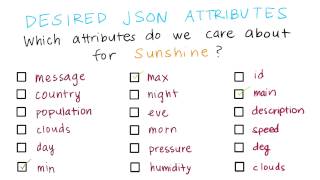 DESIRED JSON ATTRIBUTES
Which attributes do we care about
for Sunshine?
message
country
population
clouds
day
min
max
night
eve
morn
pressure
humidity
id
main
description
speed
deg
clouds